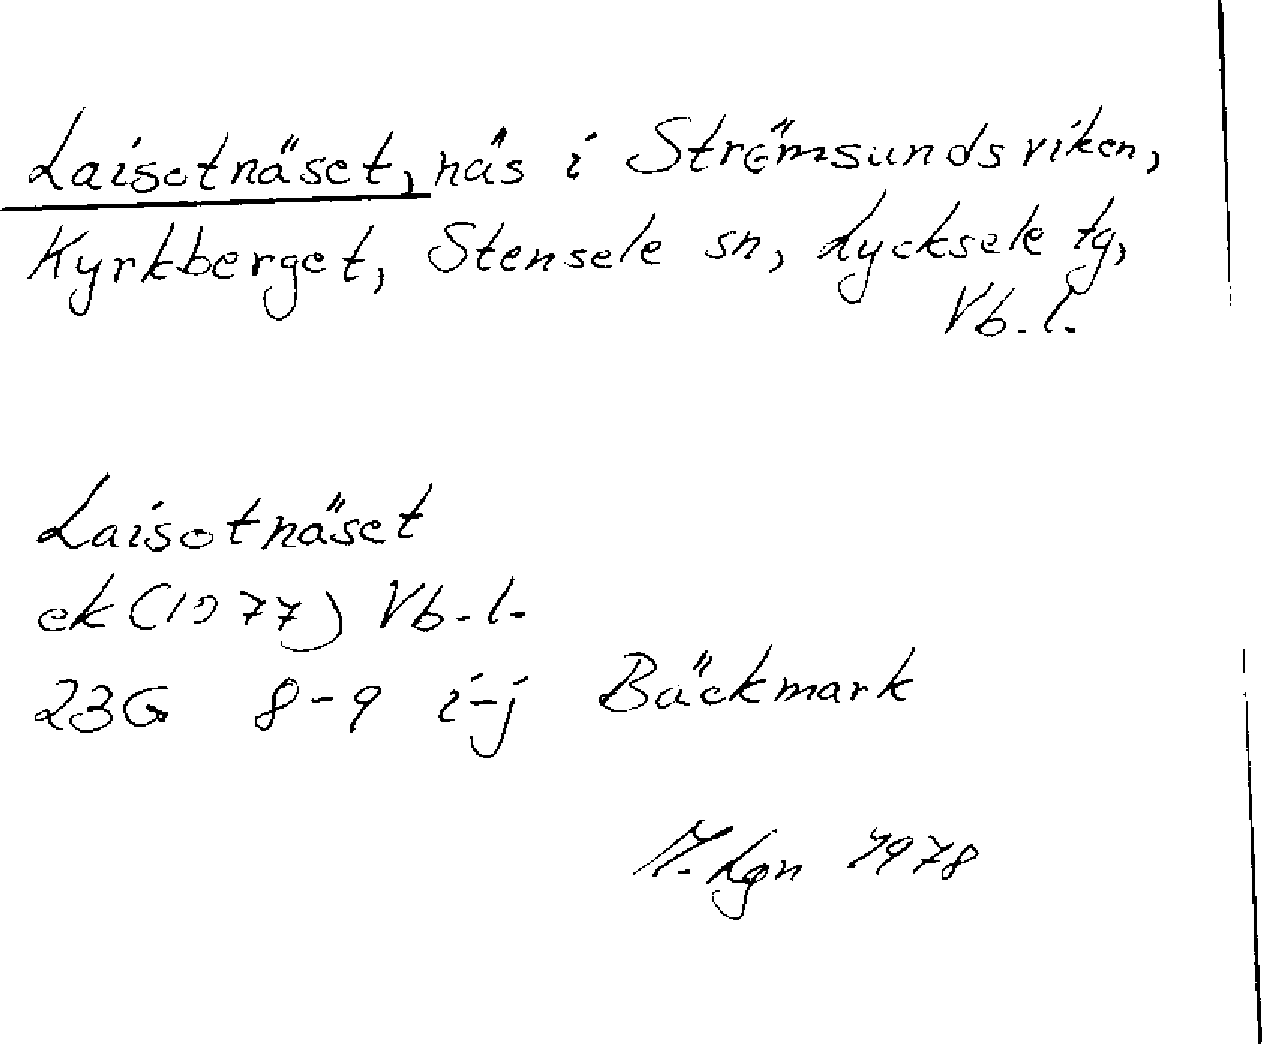 Laisotnäset, näs i Strömsundsviken,
Kyrkberget, Stensele sn, Lycksele tg,
Vb. l.
Laisotnäset
ek (1977) Vb. l.
23G 8-9 i-j Bäckmark
M. Lgn 1978